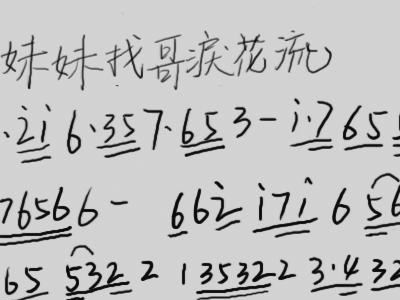 妹妹找哥淚花流
·2i 6·357·653-i·765
76566- 662 i7i 6 56
65 5322 1353223·432